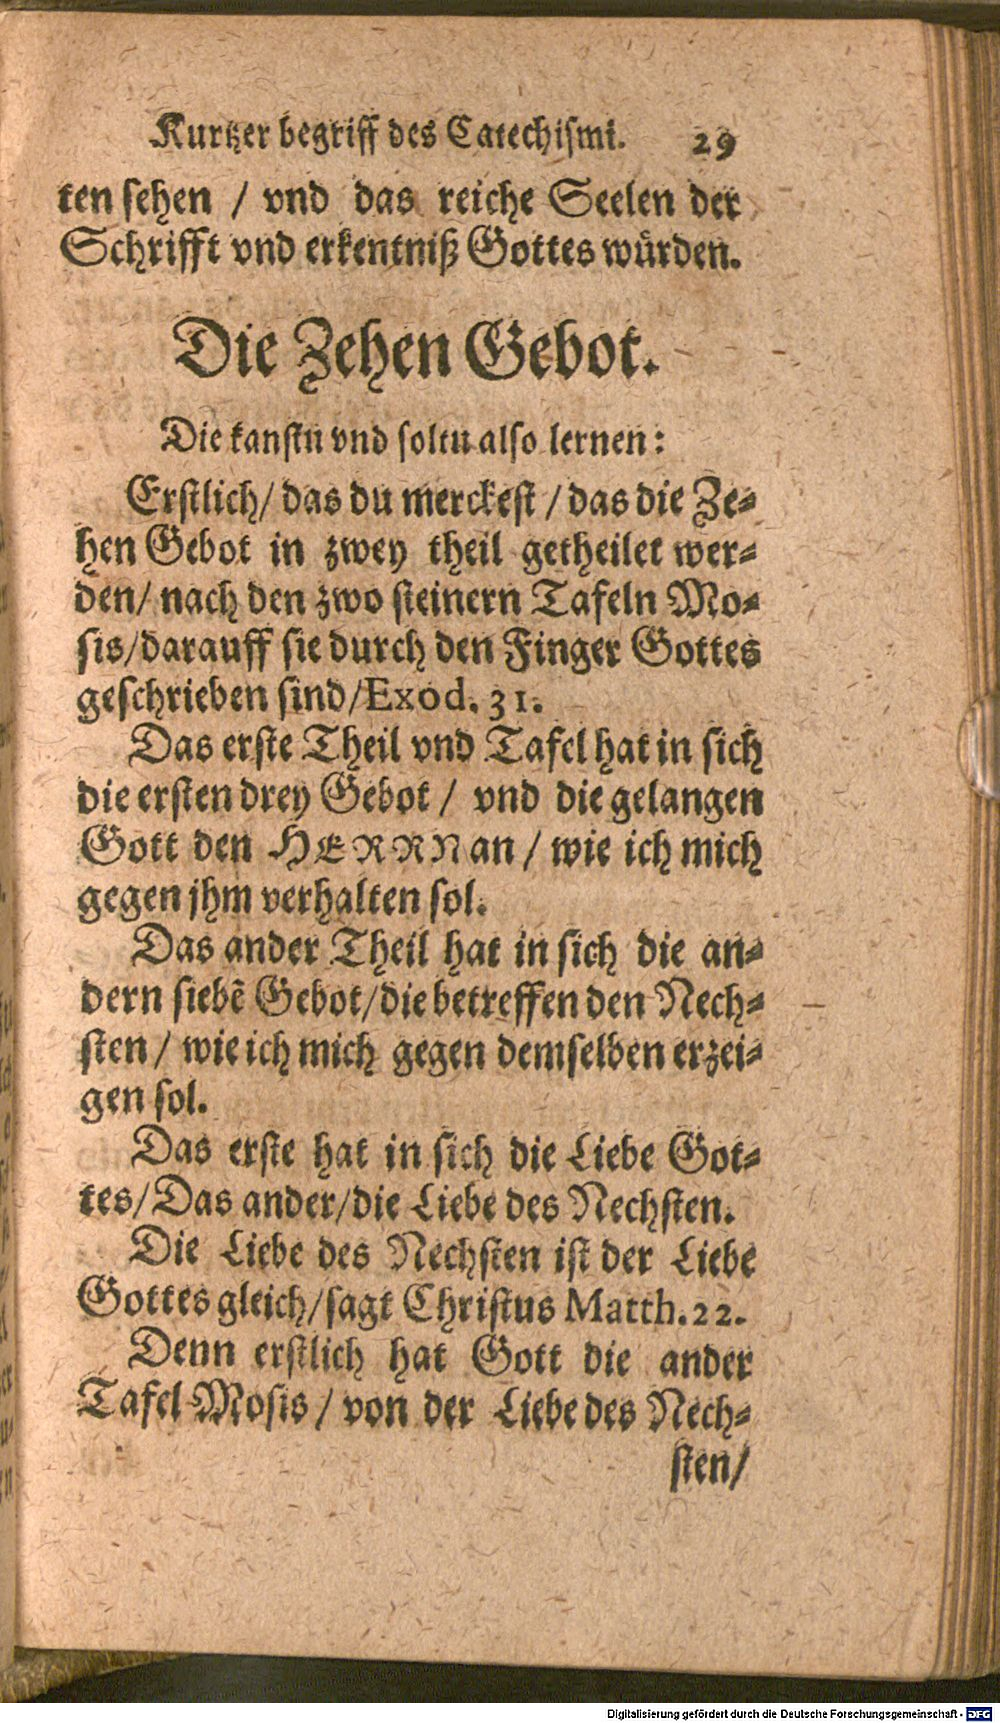 Kurtzer begriff des Catechismi. 29
ten sehen / vnd das reiche Seelen der
Schrifft vnd erkentniß Gottes würden.
Die Zehen Gebot.
Die kanstu vnd soltu also lernen:
Erstlich/ das du merckest / das die Ze-
hen Gebot in zwey theil getheilet wer-
den/ nach den zwo steinern Tafeln Mo-
sis/darauff sie durch den Finger Gottes
geschrieben sind/Exod. 31.
Das erste Theil vnd Tafel hat in sich
die ersten drey Gebot / vnd die gelangen
Gott den HERRN an / wie ich mich
gegen jhm verhalten sol.
Das ander Theil hat in sich die an-
dern siebẽ Gebot/die betreffen den Nech-
sten / wie ich mich gegen demselben erzei-
gen sol.
Das erste hat in sich die Liebe Got-
tes/Das ander/die Liebe des Nechsten.
Die Liebe des Nechsten ist der Liebe
Gottes gleich/sagt Christus Matth. 22.
Denn erstlich hat Gott die ander
Tafel Mosis / von der Liebe des Nech-
sten/
Digitalisierung gefördert durch die Deutsche Forschungsgemeinschaft - DFG